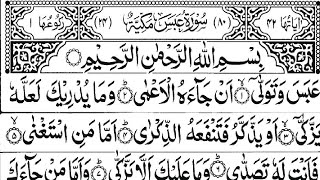 اٰيَاتُهَا ٤٢ (٨٠) سُوْرَةُ عَبَسَ مَكِّيَّةٌ (٢٤) رُكُوْعُهَا ١
بِسْمِ اللّٰهِ الرَّحْمٰنِ الرَّحِيْمِ
عَبَسَ وَتَوَلّٰىٓ ۙ۱ اَنْ جَآءَهُ الْاَعْمٰى ؕ۲ وَمَا يُدْرِيْكَ لَعَلَّهٗ
يَزَّكّٰىٓ ۙ۳ اَوْ يَذَّكَّرُ فَتَنْفَعَهُ الذِّكْرٰى ؕ۴ اَمَّا مَنِ اسْتَغْنٰى ۙ۵
فَاَنْتَ لَهٗ تَصَدّٰى ؕ۶ وَمَا عَلَيْكَ اَلَّا يَزَّكّٰى ؕ۷ وَاَمَّا مَنْ جَآءَكَ